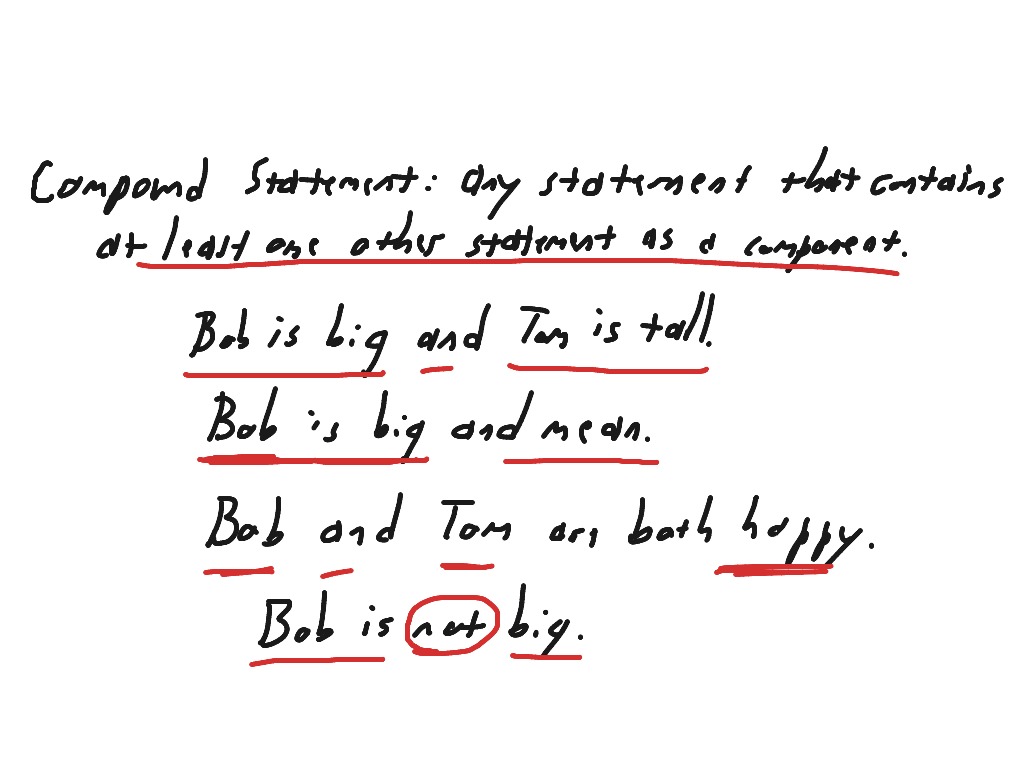 Compound Statement: any statement that contains
at least one other statement as a component.
Bob is big and Tom is tall.
Bob is big and mean.
Bob and Tom are both happy.
Bob is not big.